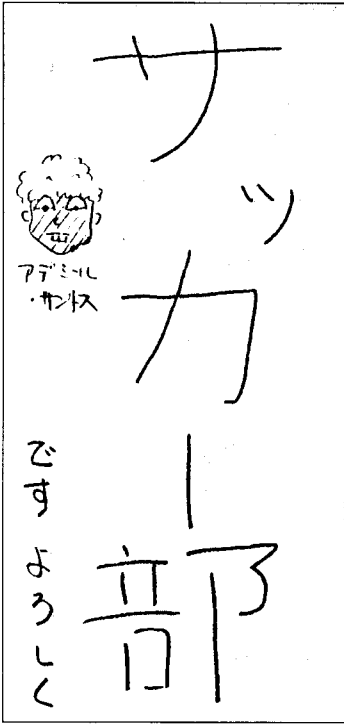 サッカー部
アデミール
・サントス
です よろしく